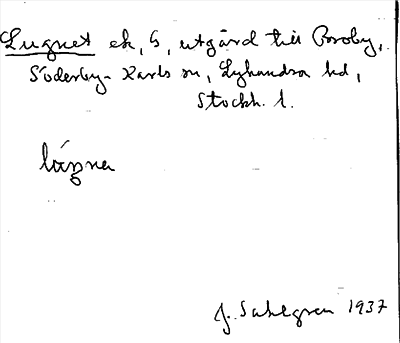 Lugnet ek, S, utgård till Broby,
Söderby-Karls sn, Lyhundra hd,
Stockh. l.
J. Sahlgren 1937